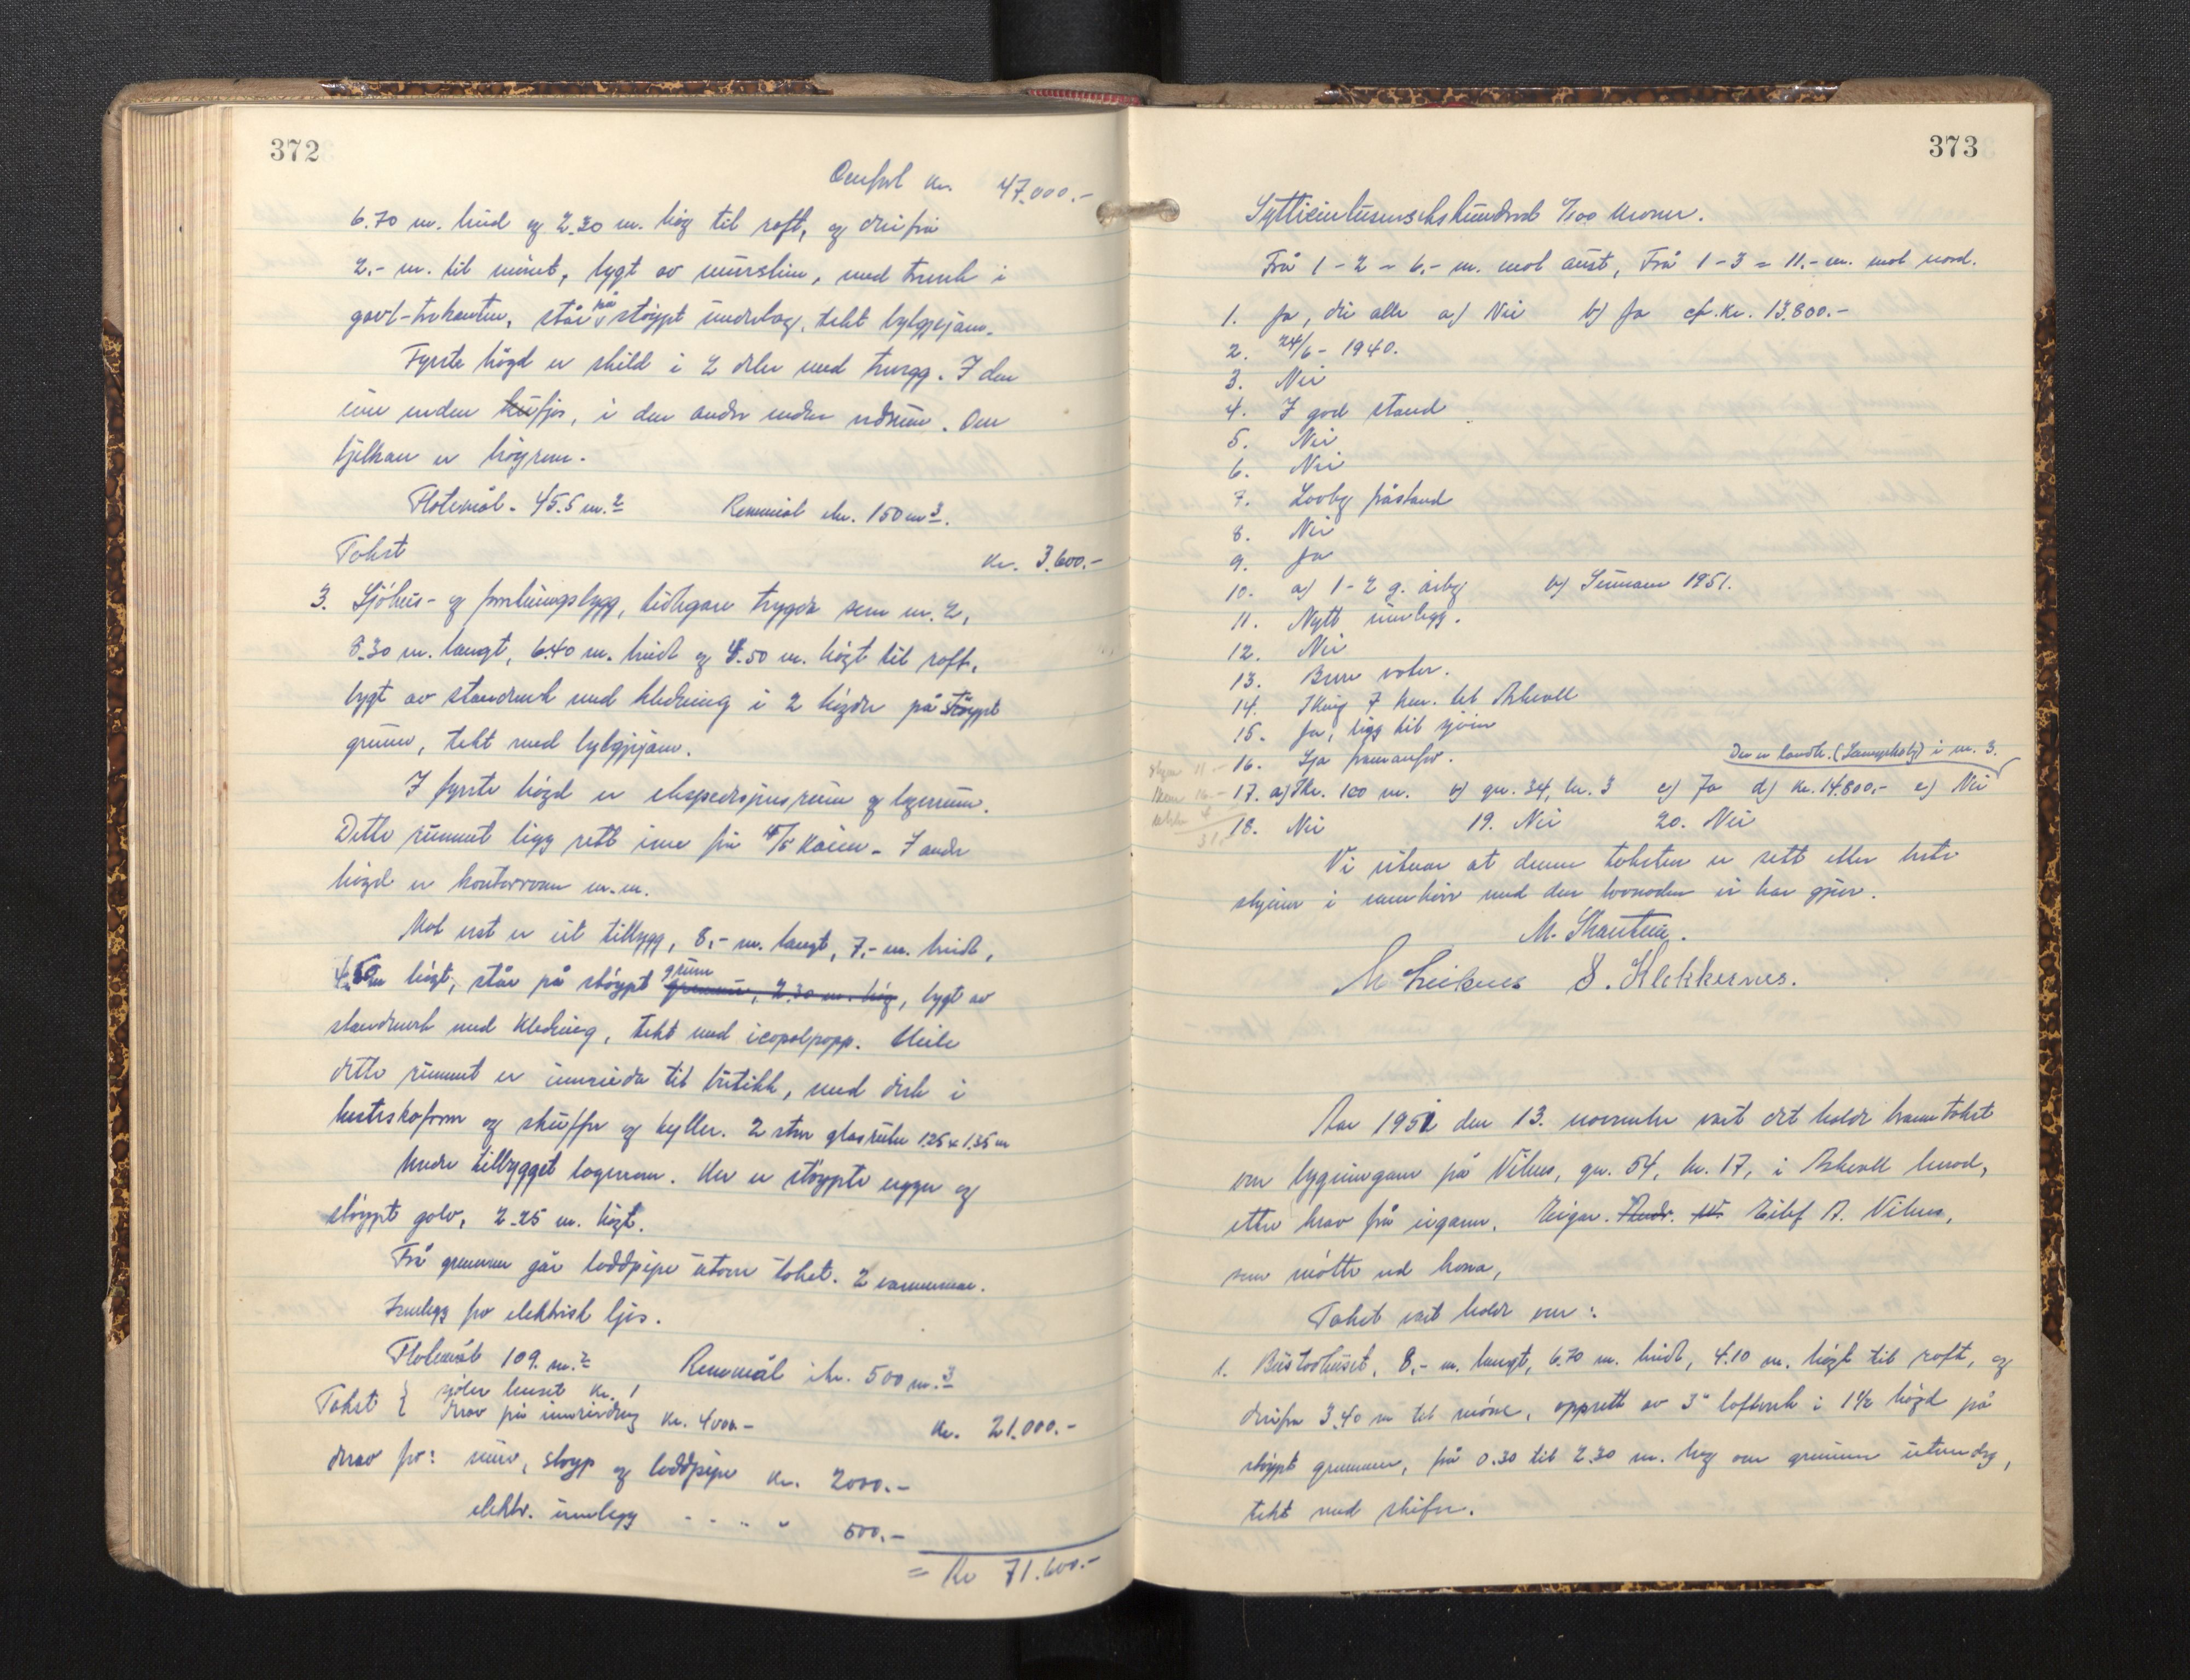 372
Overført kr. 47.000.-
6.70 m. breid og 2.30 m. høg til roft, og derifrå
2.- m. til mønet, bygt av murstein, med treverk i
gavl-trekanten, står på støypt underlag, tekt bylgjejarn.
Fyrste høgd er skild i 2 deler med trevegg. I den
eine enden fjos, i den andre enden vedrum. Over
bjelkane er høyrom.
Flatemål. 45.5 m.2 Rommål ikr. 150 m3.
Takst kr. 3.600.-
3. Sjøhus- og forretningsbygg, tidlegare trygda som nr. 2,
8.30 m. langt, 6.40 m. breidt og 4.50 m. høgt til roft,
bygt av standverk med kledning i 2 høgder på støypt
grunn, tekt med bylgjejarn.
I fyrste høgd er ekspedisjonsrum og lagerrum.
Dette rummet ligg rett inne frå D/S Kaien. I andre
høgd er kontorrom m.m.
Mot vest er eit tilbygg, 8,- m. langt, 7,- m. breidt,
4.50 m høgt, står på støypt grunn grunnmur, 2.30 m. høg, bygt av
standverk med kledning, tekt med icopalpapp. Heile
dette rummet er innreida til butikk, med disk i
hesteskoform og skuffer og hyller. 2 store glasruter 1.25 x 1.35 m
Under tilbygget lagerrom. Her er støypte vegger og
støypt golv, 2.25 m. høgt.
Frå grunnen går loddpipe utom taket. 2 varmeomnar.
Innlegg for elektrisk ljos.
Flatemål 109. m.2 Rommål ikr. 500 m.3
Takst { sjølve huset kr. 1
Herav på innreiding kr. 4000.- kr. 21.000.-
Herav for: mur, støyp og loddpipe kr. 2000.-
elektr. innlegg - - „ „ 500.-
= Kr 71.600.-
373
Syttieintusensekshundrad 0/100 kroner.
Frå 1 - 2 = 6,- m. mot aust, Frå 1 - 3 = 11,- m. mot nord.
1. Ja, dei alle a) Nei b) Ja cf. kr. 13.800.-
2. 24/6 - 1940.
3. Nei
4. I god stand
5. Nei
6. Nei
7. Lovleg påstand
8. Nei
9. Ja
10. a) 1 - 2 g. årleg b) Sumaren 1951.
11. Nytt innlegg.
12. Nei
13. Berre vater.
14. Ikring 7 km. til Askvoll
15. Ja, ligg til sjøen
16. Sjå framanfor.
Der er landh. (Kramhandel) i nr. 3.
17. a) Ikr. 100 m. b) gn. 34, br. 3 c) Ja d) kr. 14.800,- e) Nei
18. Nei 19. Nei 20. Nei
Vi vitnar at denne taksten er sett etter beste
skjøn i samhøve med den lovnaden vi har gjeve.
M. Skautun.
M Leiknes S. Klekkernes.
Aar 1951 den 13. november vart det halde branntakst
over bygningane på Vilnes, gn. 54, br. 17, i Askvoll herad,
etter krav frå eigaren. Eigar. Andr. W. Eilef A. Vilnes,
som møtte ved kona,
Takst vart halde over:
1. Bustadhuset, 8,- m. langt, 6.70 m. breidt, 4.10 m. høgt til roft, og
derifrå 3.40 m til møne, oppsett av 3" lafteverk i 1 1/2 høgd på
støypt grunnmur, frå 0.30 til 2.30 m. høg over grunnen utvendig,
tekt med skifer.